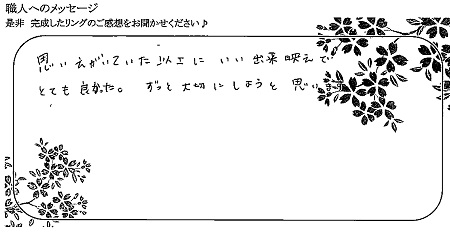 職人へのメッセージ
是非 完成したリングのご感想をお聞かせください♪
思いえがいていた以上に いい出来映えで
とても良かった。 ずっと大切にしようと 思います